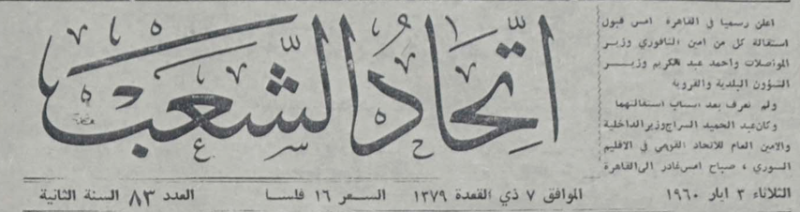 اتحاد الشعب
اعلن رسميا في القاهرة امس قبول
استقالة كل من امين النافوري وزير
المواصلات واحمد عبد الكريم وزير
الشؤون البلدية والقروية
ولم تعرف بعد اسباب استقالتهما
وكان عبد الحميد السراج وزير الداخلية
والامين العام للاتحاد القومي في الاقليم
السوري ، صباح امس غادر الى القاهرة
الثلاثاء ٣ ايار ١٩٦٠ الموافق ٧ ذي القعدة ١٣٧٩ السعر ١٦ فلسا العدد ٨٣ السنة الثانية